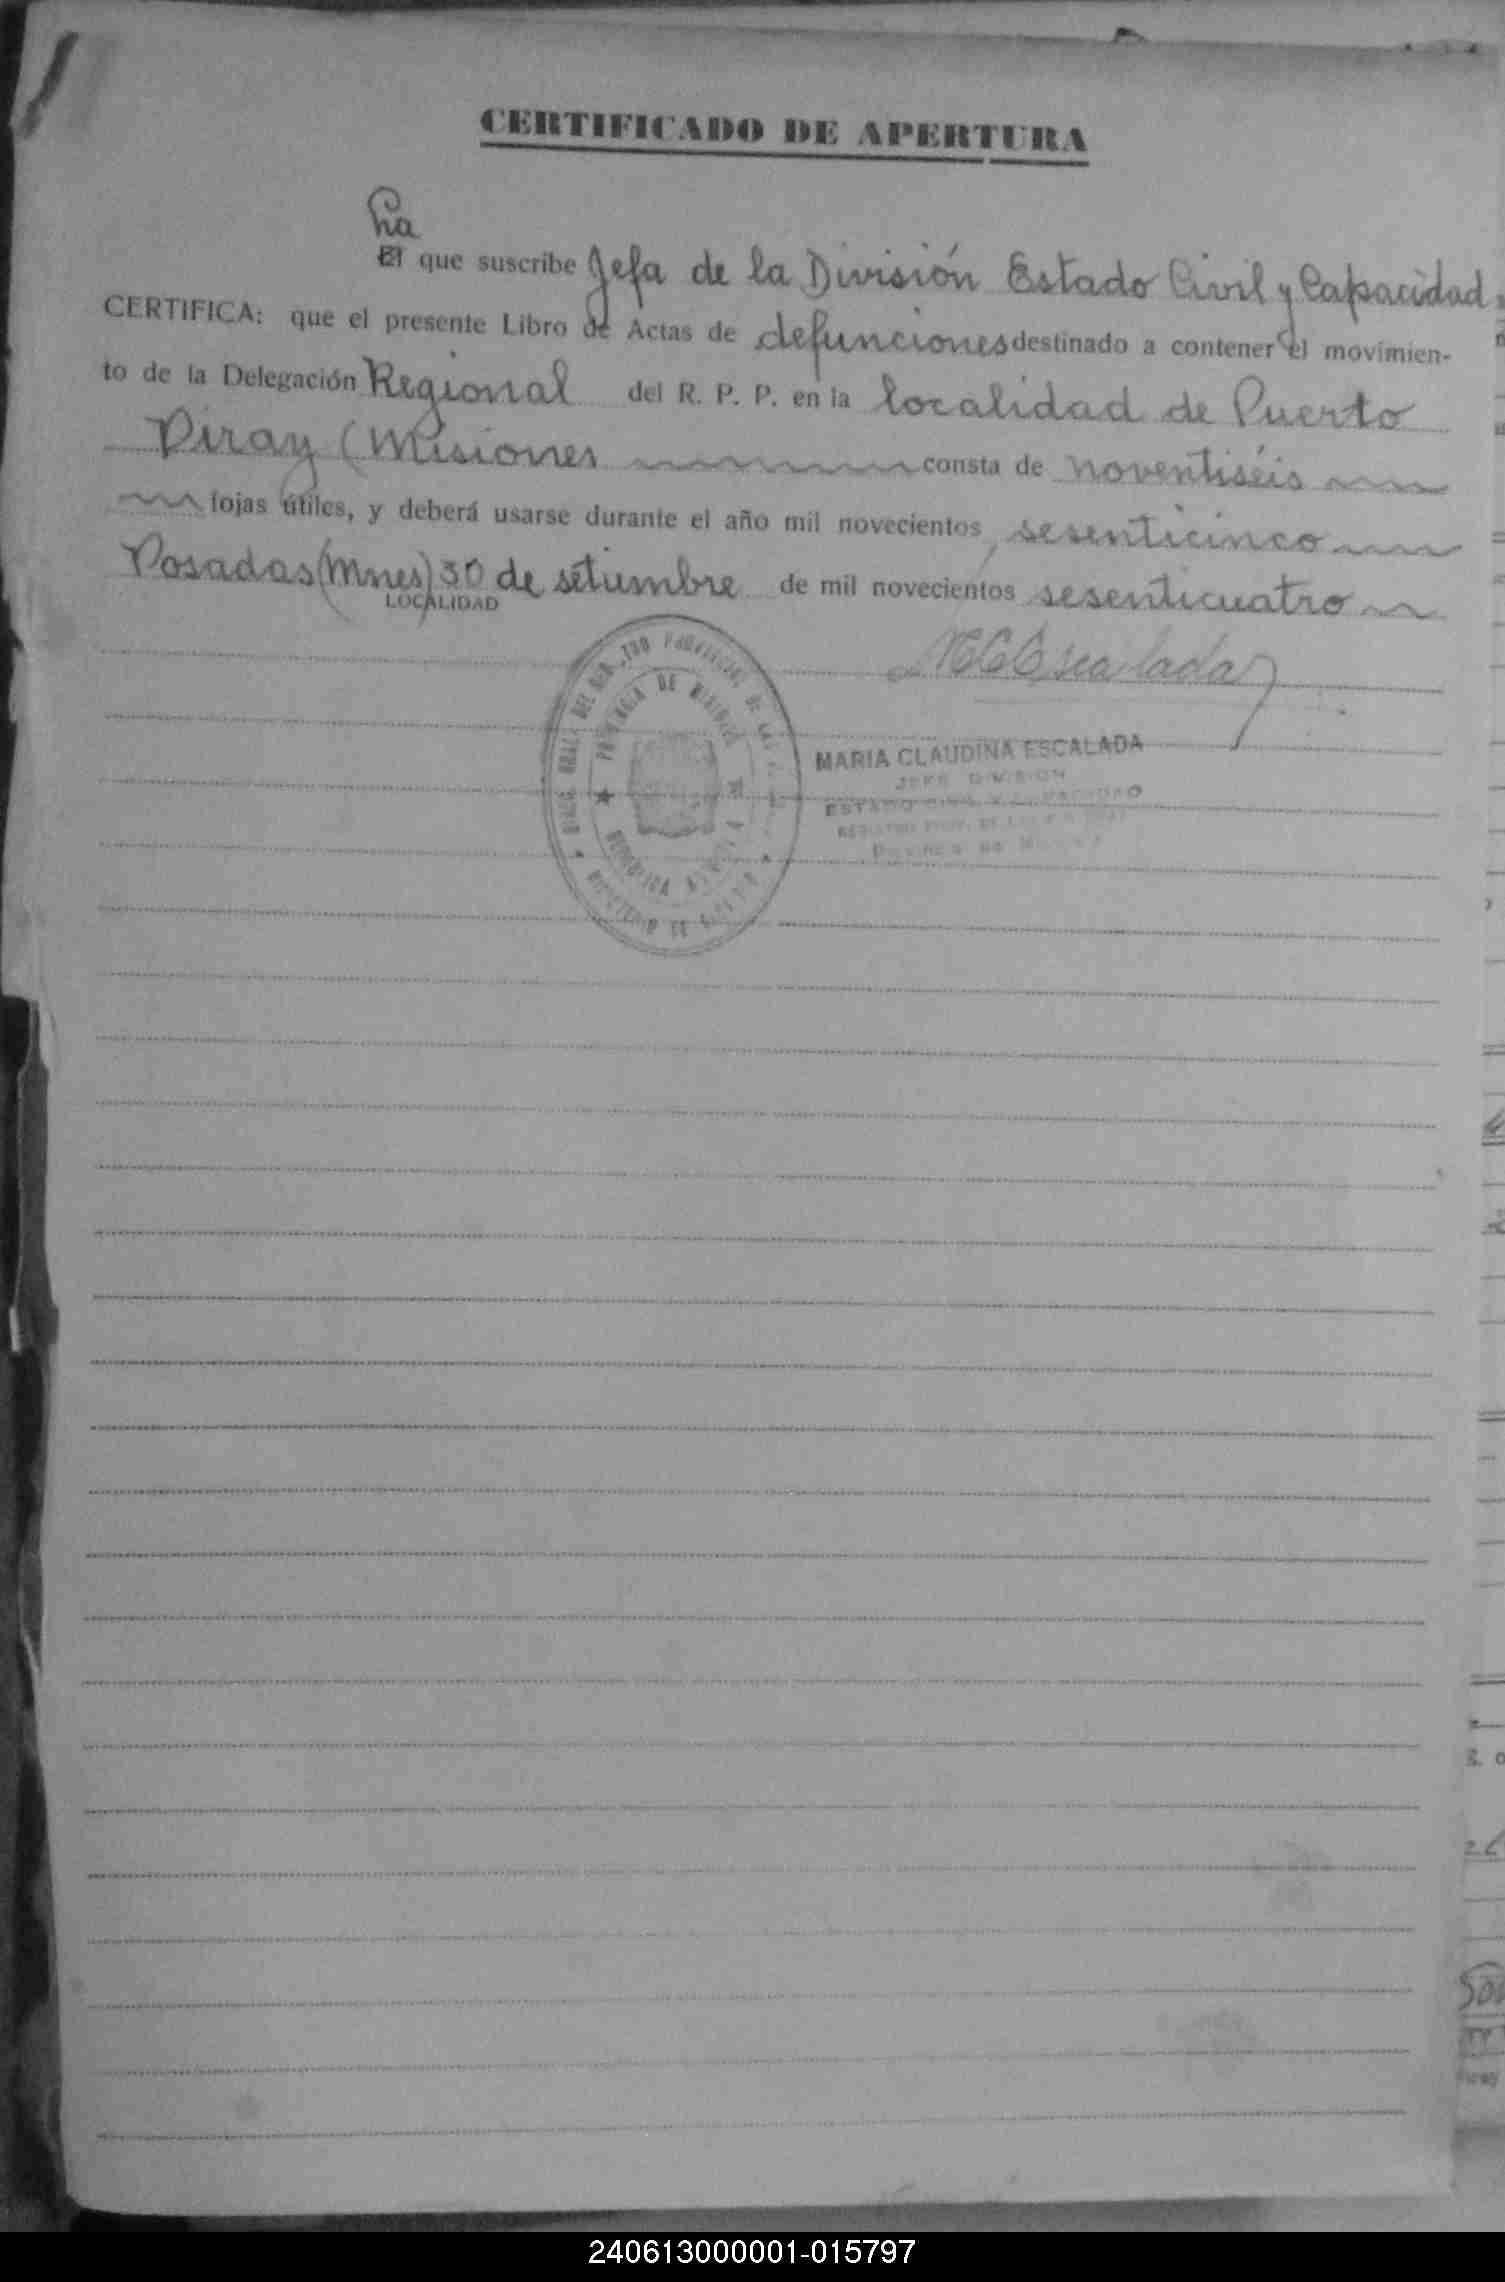 CERTIFICADO DE APERTURA
La
El que suscribe Jefa de la División Estado Civil y Capacidad
CERTIFICA: que el presente Libro de Actas de defunciones destinado a contener el movimien-
to de la Delegación Regional del R. P. P. en la localidad de Puerto
Piray (Misiones consta de noventiséis
fojas útiles, y deberá usarse durante el año mil novecientos sesenticinco
Posadas (Mnes) 30 de setiembre de mil novecientos sesenticuatro
LOCALIDAD
MCEscalada
MARIA CLAUDINA ESCALADA
JEFE DIVISION
ESTADO CIVIL Y CAPACIDAD
PROVINCIA DE MISIONES
REPUBLICA
240613000001-015797